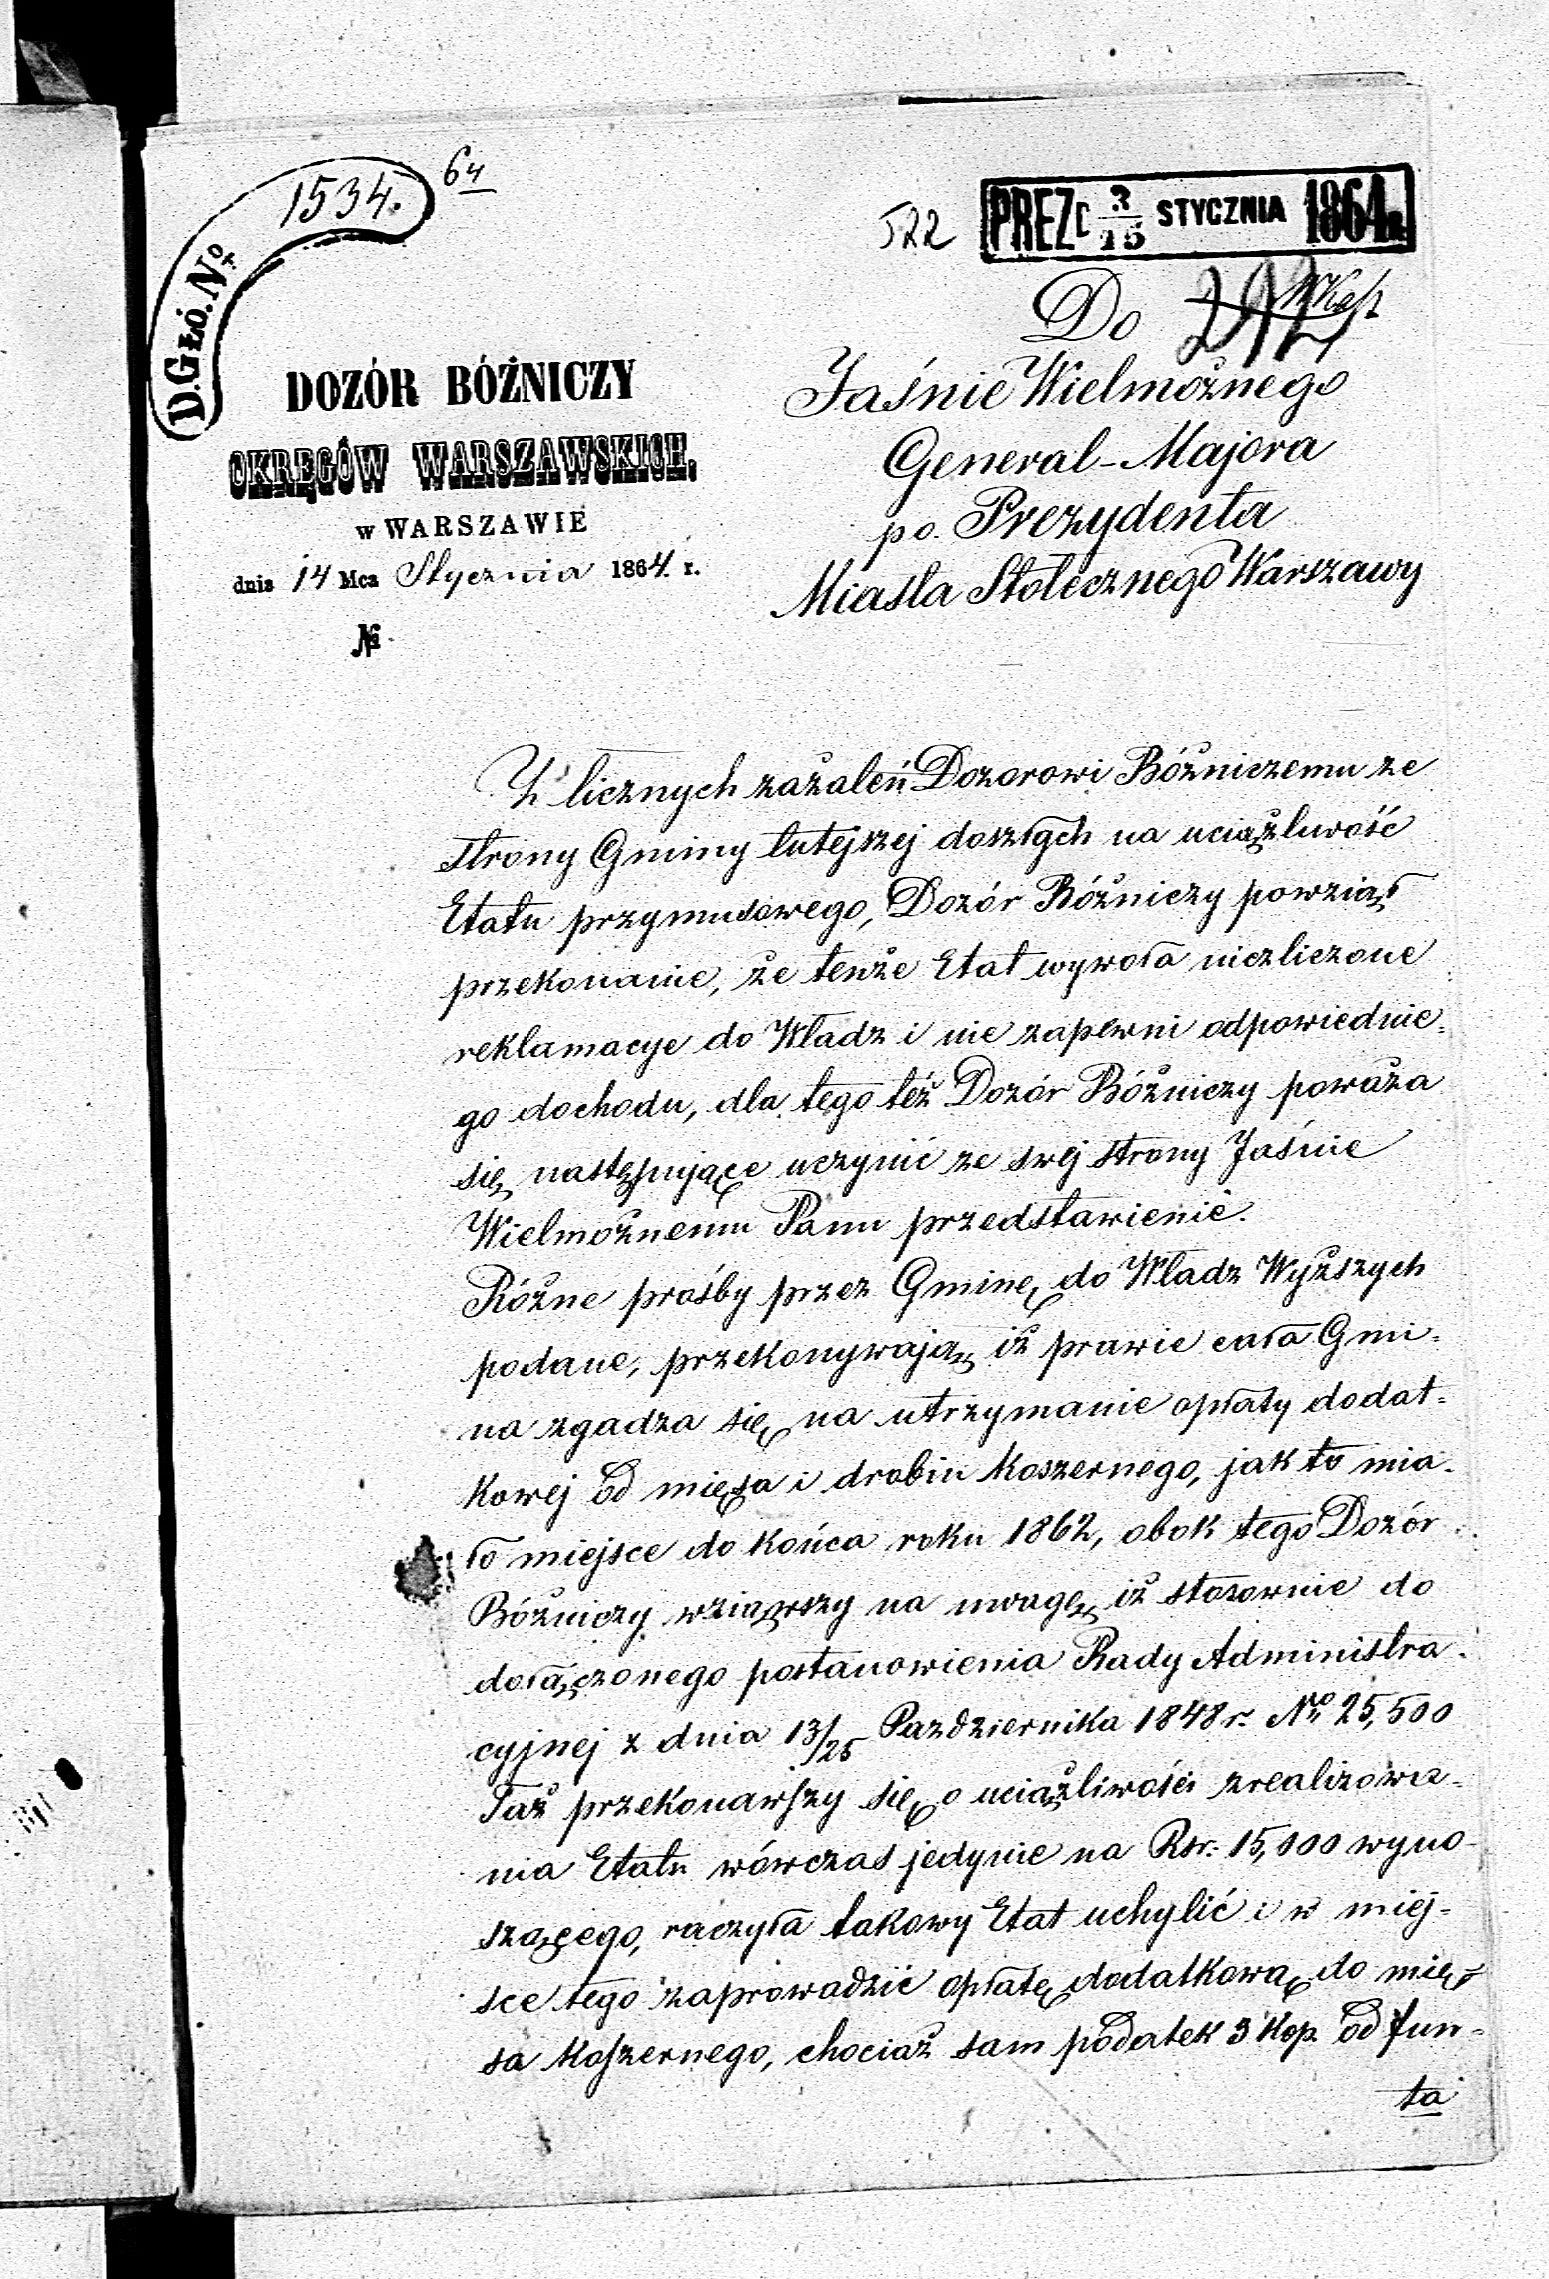 D. GŁÓ. No. 1534. 64
522 PREZ D 3/15 STYCZNIA 1864 r.
DOZÓR BÓŻNICZY
OKRĘGÓW WARSZAWSKICH,
w WARSZAWIE
dnia 14 Mca Stycznia 1864. r.
№
Do
Jaśnie Wielmożnego
General-Majora
po. Prezydenta
Miasta Stołecznego Warszawy
Z licznych zażaleń Dozorowi Bóżniczemu ze
strony Gminy tutejszej doszłych na uciążluwość
Etatu przymusowego, Dozór Bóżniczy powziął
przekonanie, że tenże Etat wywoła niezliczone
reklamacye do Władz i nie zapewni odpowiednie-
go dochodu, dla tego też Dozór Bóżniczy poważa
się następujące uczynić ze swej strony Jaśnie
Wielmożnemu Panu przedstawienie.
Różne prośby przez Gminę do Władz Wyższych
podane, przekonywają iż prawie cała Gmi-
na zgadza się na utrzymanie opłaty dodat-
kowej od mięsa i drobiu koszernego, jak to mia-
ło miejsce do końca roku 1862, obok tego Dozór
Bóżniczy wziąwszy na uwagę iż stosownie do
dołączonego postanowienia Rady Administra-
cyjnej z dnia 13/25 Października 1848 r. No 25,500
Taż przekonawszy się o uciążliwości zrealizowa-
nia Etatu wówczas jedynie na Rsr: 15,000 wyno-
szącego, raczyła takowy Etat uchylić i w miej-
sce tego zaprowadzić opłatę dodatkową do mię-
sa koszernego, chociaż sam podatek 3 kop. od fun-
ta